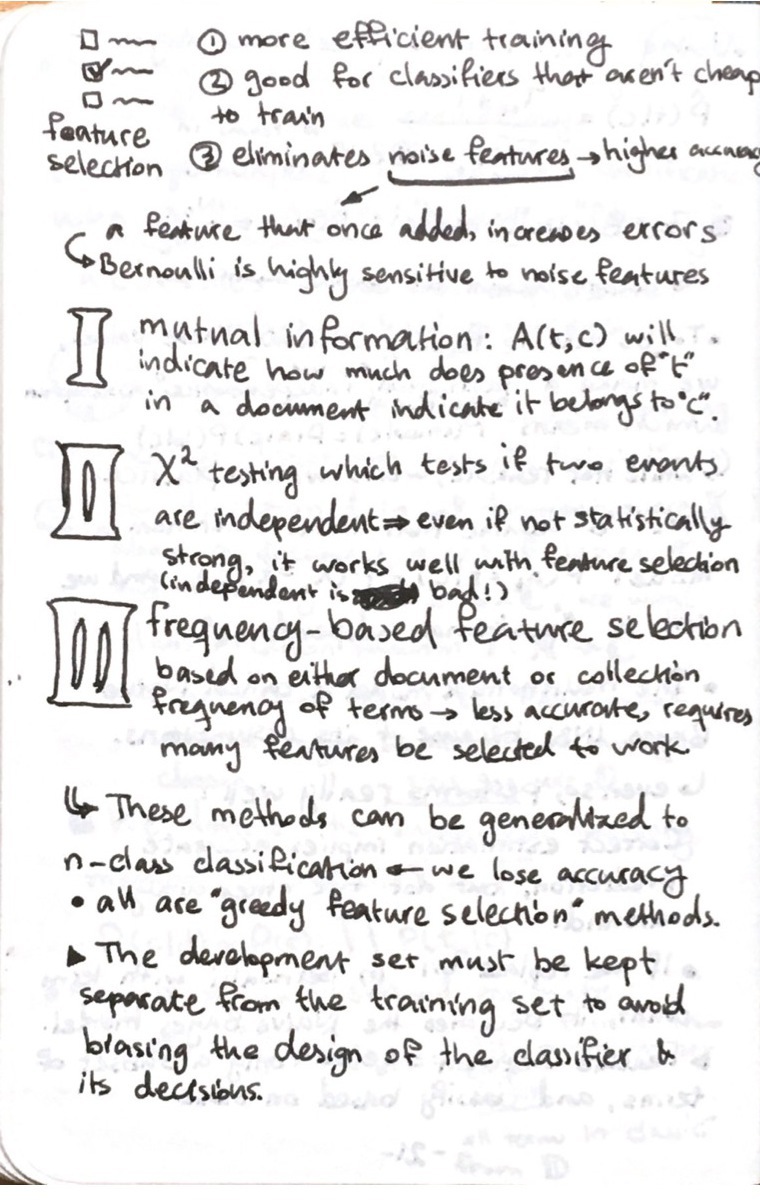 ① more efficient training
② good for classifiers that aren't cheap
to train
feature
selection
③ eliminates noise features → higher accuracy
a feature that once added, increases errors
↳ Bernoulli is highly sensitive to noise features
I mutual information: A(t,c) will
indicate how much does presence of "t"
in a document indicate it belongs to "c".
II X² testing which tests if two events
are independent ⇒ even if not statistically
strong, it works well with feature selection
(independent is bad!)
III frequency-based feature selection
based on either document or collection
frequency of terms → less accurate, requires
many features be selected to work
↳ These methods can be generalized to
n-class classification ← we lose accuracy
• all are "greedy feature selection" methods.
▶ The development set must be kept
separate from the training set to avoid
biasing the design of the classifier &
its decisions.